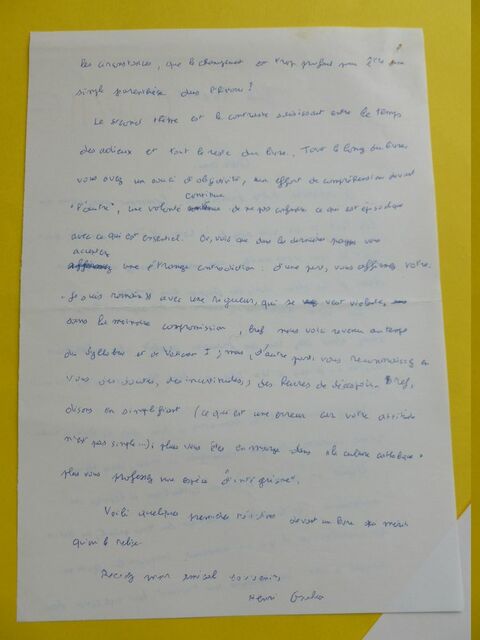 les circonstances, que le changement est trop profond pour être une
simple parenthèse dans l'Eglise ?
Le second thème est le contraste saisissant entre le temps
des adieux et tout le reste du livre. Tout le long du livre
vous avez un souci d'objectivité, un effort de compréhension devant
"l'autre", une volonté continue de ne pas confondre ce qui est épisodique
avec ce qui est essentiel. Or, voici que dans les dernières pages vous
acceptez une étrange contradiction : d'une part, vous affirmez votre
"je suis romain" avec une rigueur qui se veut violente,
dans la moindre compromission, bref nous voici revenu au temps
du Syllabus et de Vatican I ; mais, d'autre part, vous reconnaissez en
vous des doutes, des incertitudes, des heures de désespoir. Bref,
disons en simplifiant (ce qui est une erreur car votre attitude
n'est pas simple...), plus vous êtes en marge dans la culture catholique
plus vous professez une espèce d'"intégrisme".
Voilà quelques premières réactions devant un livre qui mérite
qu'on le relise.
Recevez mon amical souvenir,
Henri